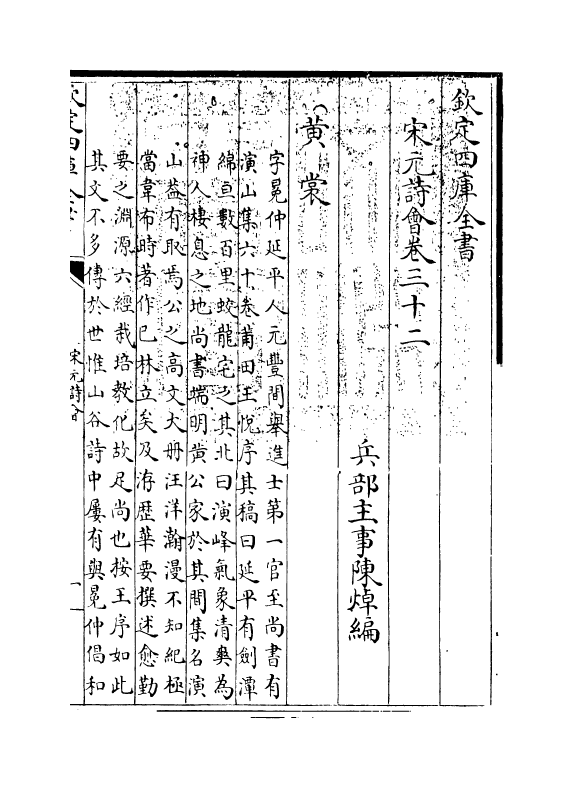 欽定四庫全書
宋元詩會卷三十二
兵部主事陳焯編
黄裳
字冕仲延平人元豐間舉進士第一官至尚書有
演山集六十卷莆田王悦序其稿曰延平有劍潭
綿亘數百里蛟龍宅之其北曰演峰氣象清爽為
神人棲息之地尚書端明黄公家於其間集名演
山葢有取焉公之高文大册汪洋瀚漫不知紀極
當韋布時著作已林立矣及洊歴華要撰述愈勤
要之淵源六經栽培教化故足尚也按王序如此
其文不多傳於世惟山谷詩中屢有與冕仲倡和
宋元詩會
一